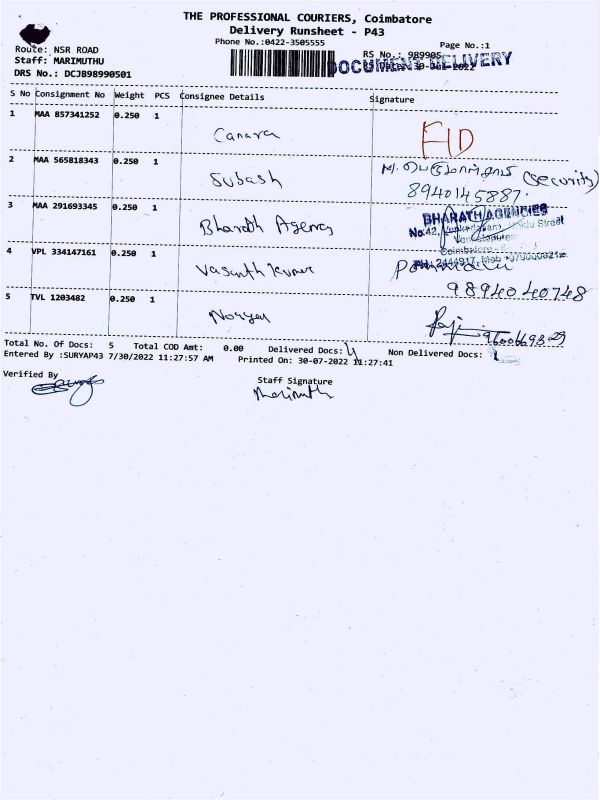 THE PROFESSIONAL COURIERS, Coimbatore
Delivery Runsheet - P43
Phone No.:0422-3505555
Page No.:1
Route: NSR ROAD
RS No.: 989905
Staff: MARIMUTHU
RS Date: 30-Jul-2022
DOCUMENT DELIVERY
DRS No.: DCJB98990501
S No Consignment No Weight PCS Consignee Details Signature
1 MAA 857341252 0.250 1 Canara
2 MAA 565818343 0.250 1 Subash (Security)
8940145887.
3 MAA 291693345 0.250 1 Bharath Agency
BHARATH AGENCIES
No:42, Street
Coimbatore
4 VPL 334147161 0.250 1 Vasanth kumar
98940 40748
5 TVL 1203482 0.250 1
Total No. Of Docs: 5 Total COD Amt: 0.00 Delivered Docs: 4 Non Delivered Docs: 1
Entered By :SURYAP43 7/30/2022 11:27:57 AM Printed On: 30-07-2022 11:27:41
Verified By
Staff Signature
Marimuth